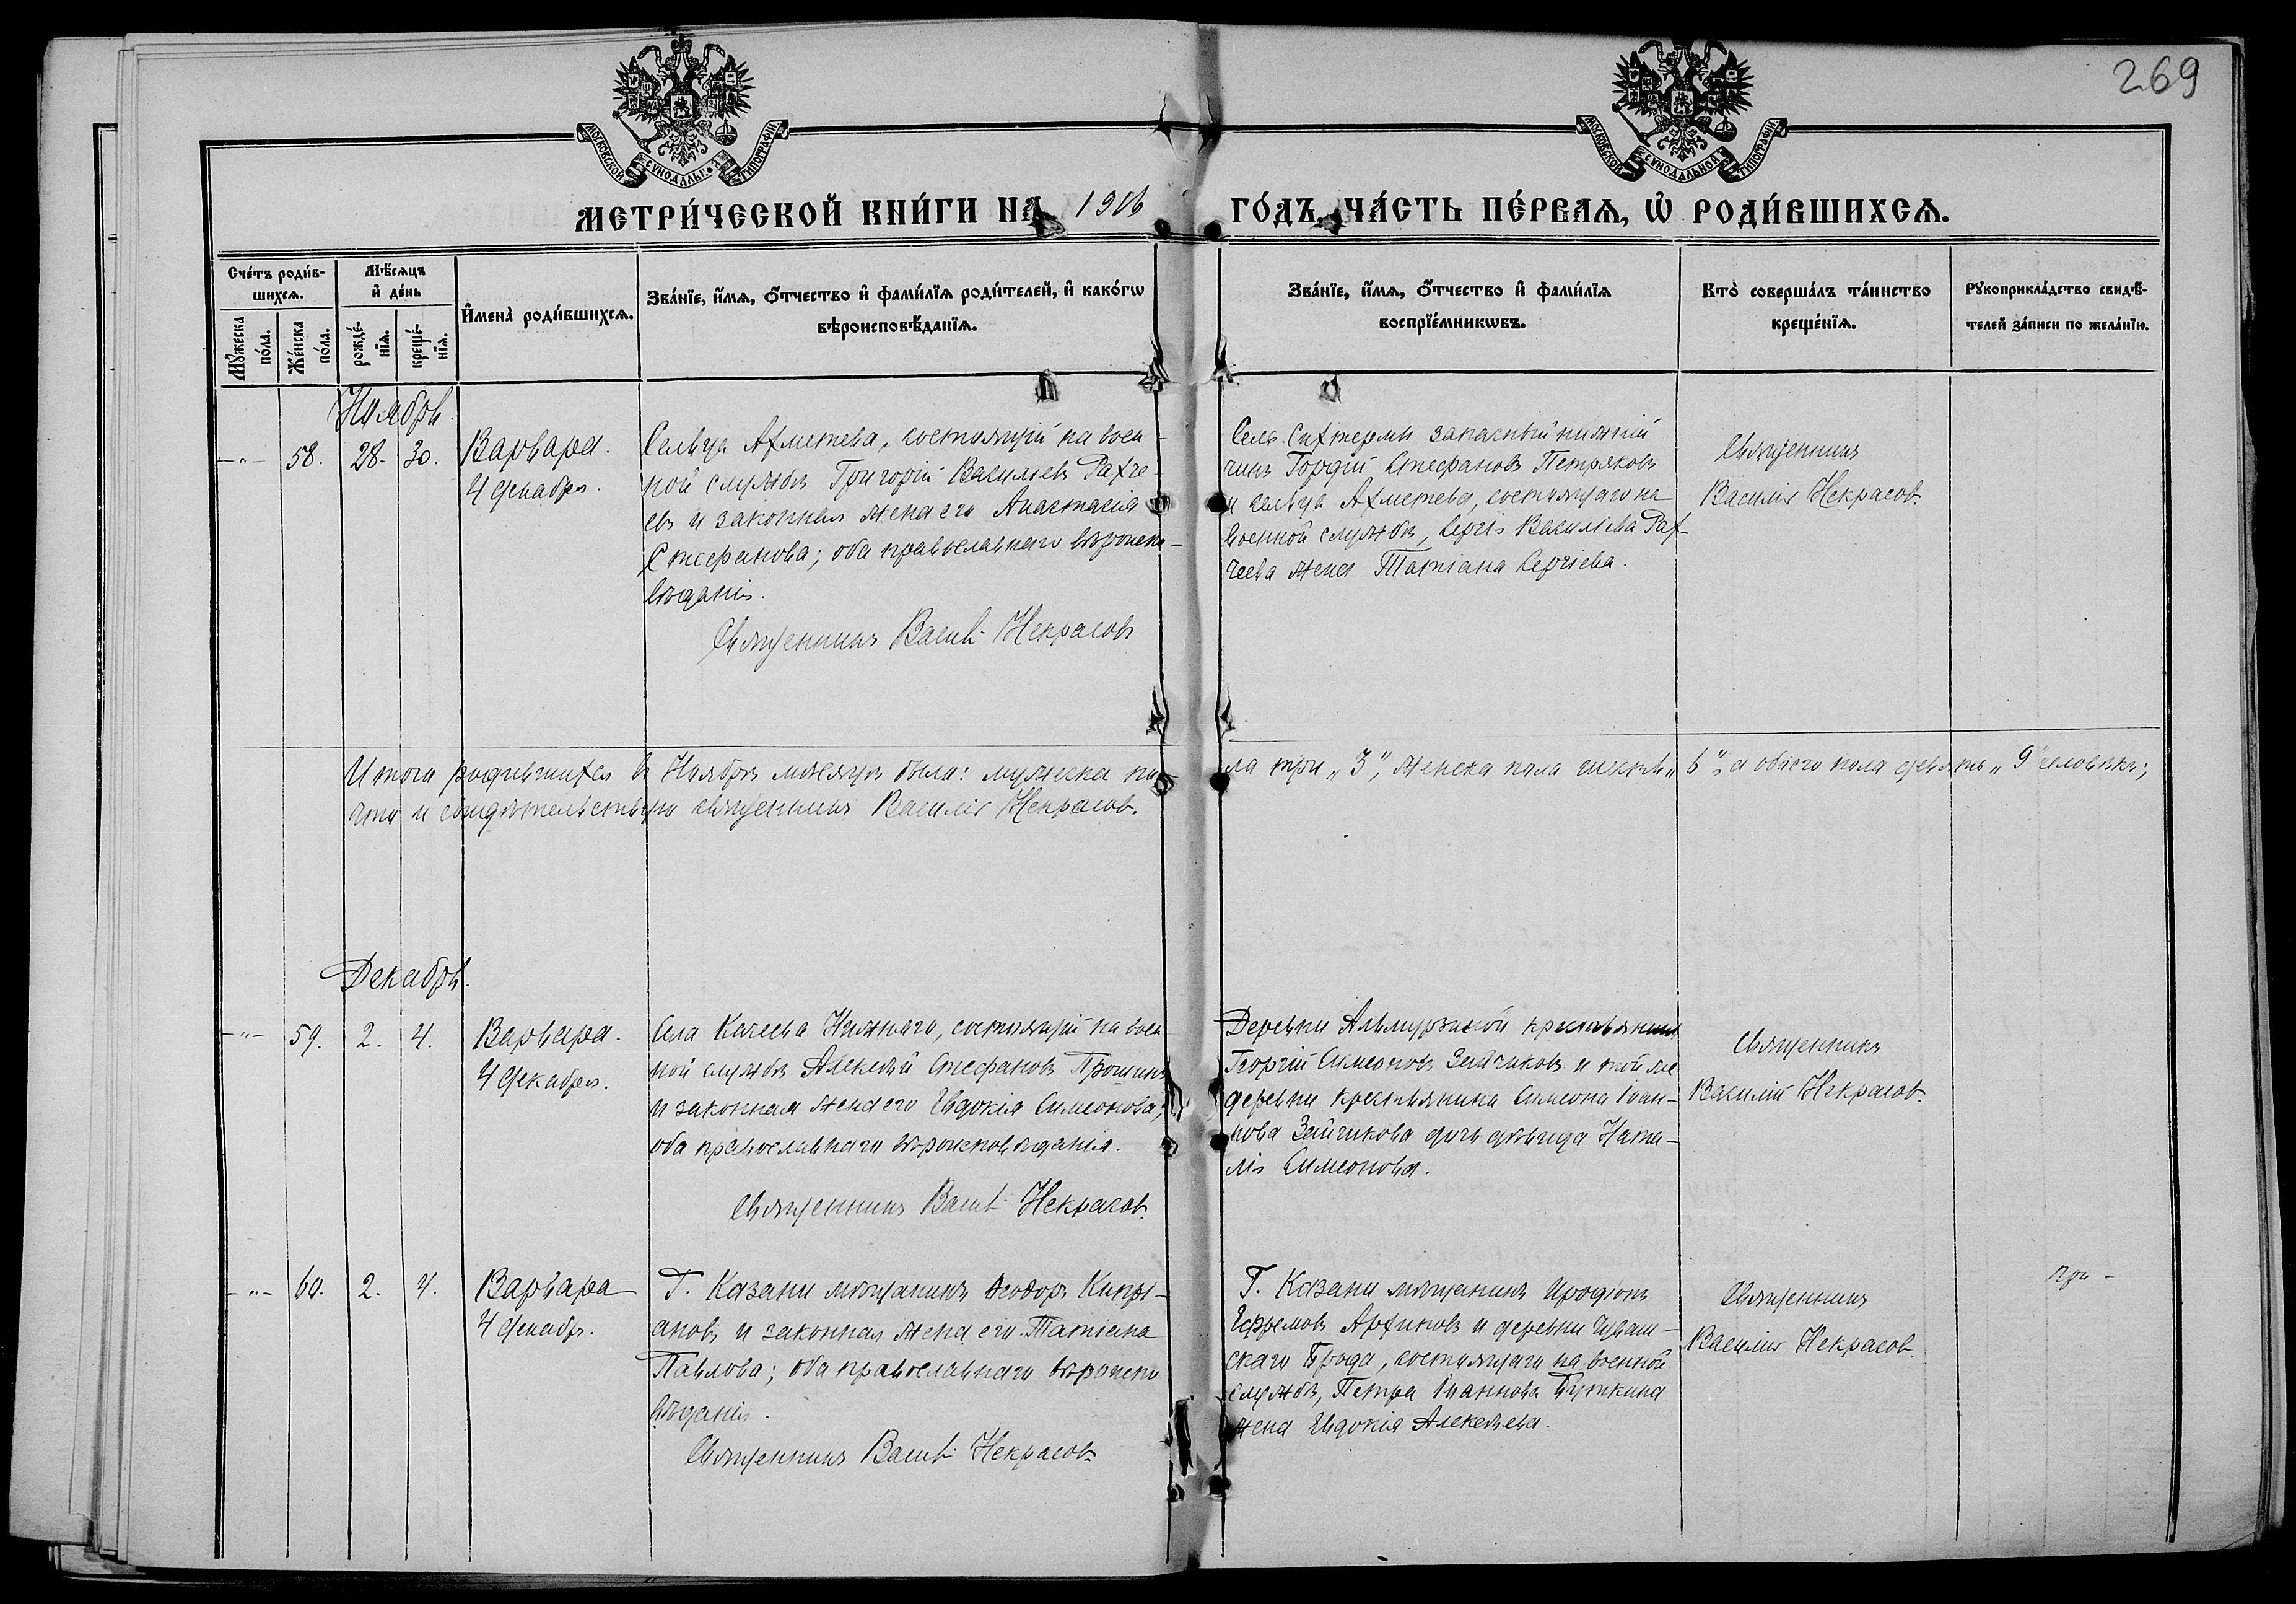 269
МОСКОВСКОЙ СѴНОДАЛЬНОЙ ТИПОГРАФІИ
МОСКОВСКОЙ СѴНОДАЛЬНОЙ ТИПОГРАФІИ
МЕТРИ́ЧЕСКОЙ КНИ́ГИ НА 1906 ГО́ДЪ, ЧА́СТЬ ПЕ́РВАЯ, Ѡ РОДИ́ВШИХСЯ.
Сче́тъ роди́в-
шихся.
Мꙋ́жеска
по́ла.
Же́нска
по́ла.
Мѣ́сяцъ
и҆ де́нь
рожде́-
нїя.
креще́-
нїя.
И҆мена̀ роди́вшихся.
Зва́нїе, и҆́мя, ѻ҆́тчество и҆ фами́лїя роди́телей, и҆ како́гѡ
вѣроисповѣ́данїя.
Зва́нїе, и҆́мя, ѻ҆́тчество и҆ фами́лїя
воспрїе́мникѡвъ.
Кто̀ соверша́лъ та́инство
креще́нїя.
Рꙋкоприкла́дство свидѣ́-
телей за́писи по жела́нїю.
Ноябрь.
-"- 58. 28. 30. Варвара.
4 декабря.
Сельца Ахметева, состоящій на воен-
ной службѣ Григорій Васильевъ Рахче
евъ и законная жена его Анастасія
Стефанова; оба православнаго вѣроиспо-
вѣданія.
Священникъ Васил. Некрасовъ
Село Сихтермы запасный нижній
чинъ Гордій Стефановъ Петряковъ
и сельца Ахметева, состоящаго на
военной службѣ, Сергія Василіева Рах-
чеева жена Татіана Сергіева.
Священникъ
Василій Некрасовъ.
Итого родившихся въ Ноябрѣ мѣсяцѣ было: мужеска по-
ла три „3", женска пола шесть „6", а обоего пола девять „9" человѣкъ;
что и свидѣтельствую священникъ Василій Некрасовъ.
Декабрь.
-"- 59. 2. 4. Варвара.
4 декабря.
Села Кочеева Нижняго, состоящій на воен
ной службѣ Алексѣй Стефановъ Прошинъ
и законная жена его Евдокія Симеонова;
оба православнаго вѣроисповѣданія.
Священникъ Васил. Некрасовъ.
Деревни Альмурзиной крестьянинъ
Георгій Симеоновъ Зайчиковъ и той же
деревни крестьянина Симеона Іоан-
нова Зайчикова дочь дѣвица Ната-
лія Симеонова.
Священникъ
Василій Некрасовъ.
-"- 60. 2. 4. Варвара
4 декабря.
Г. Казани мѣщанинъ Ѳеодоръ Кипрі-
ановъ и законная жена его Татіана
Павлова; оба православнаго вѣроиспо
вѣданія.
Священникъ Васил. Некрасовъ
Г. Казани мѣщанинъ Иродіонъ
Ефремовъ Архиповъ и деревни Чуваш-
скаго Брода, состоящаго на военной
службѣ, Петра Іоаннова Буткина
жена Евдокія Алексѣева.
Священникъ
Василій Некрасовъ.